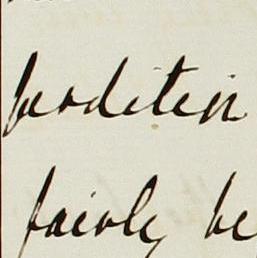 perdition
fairly be